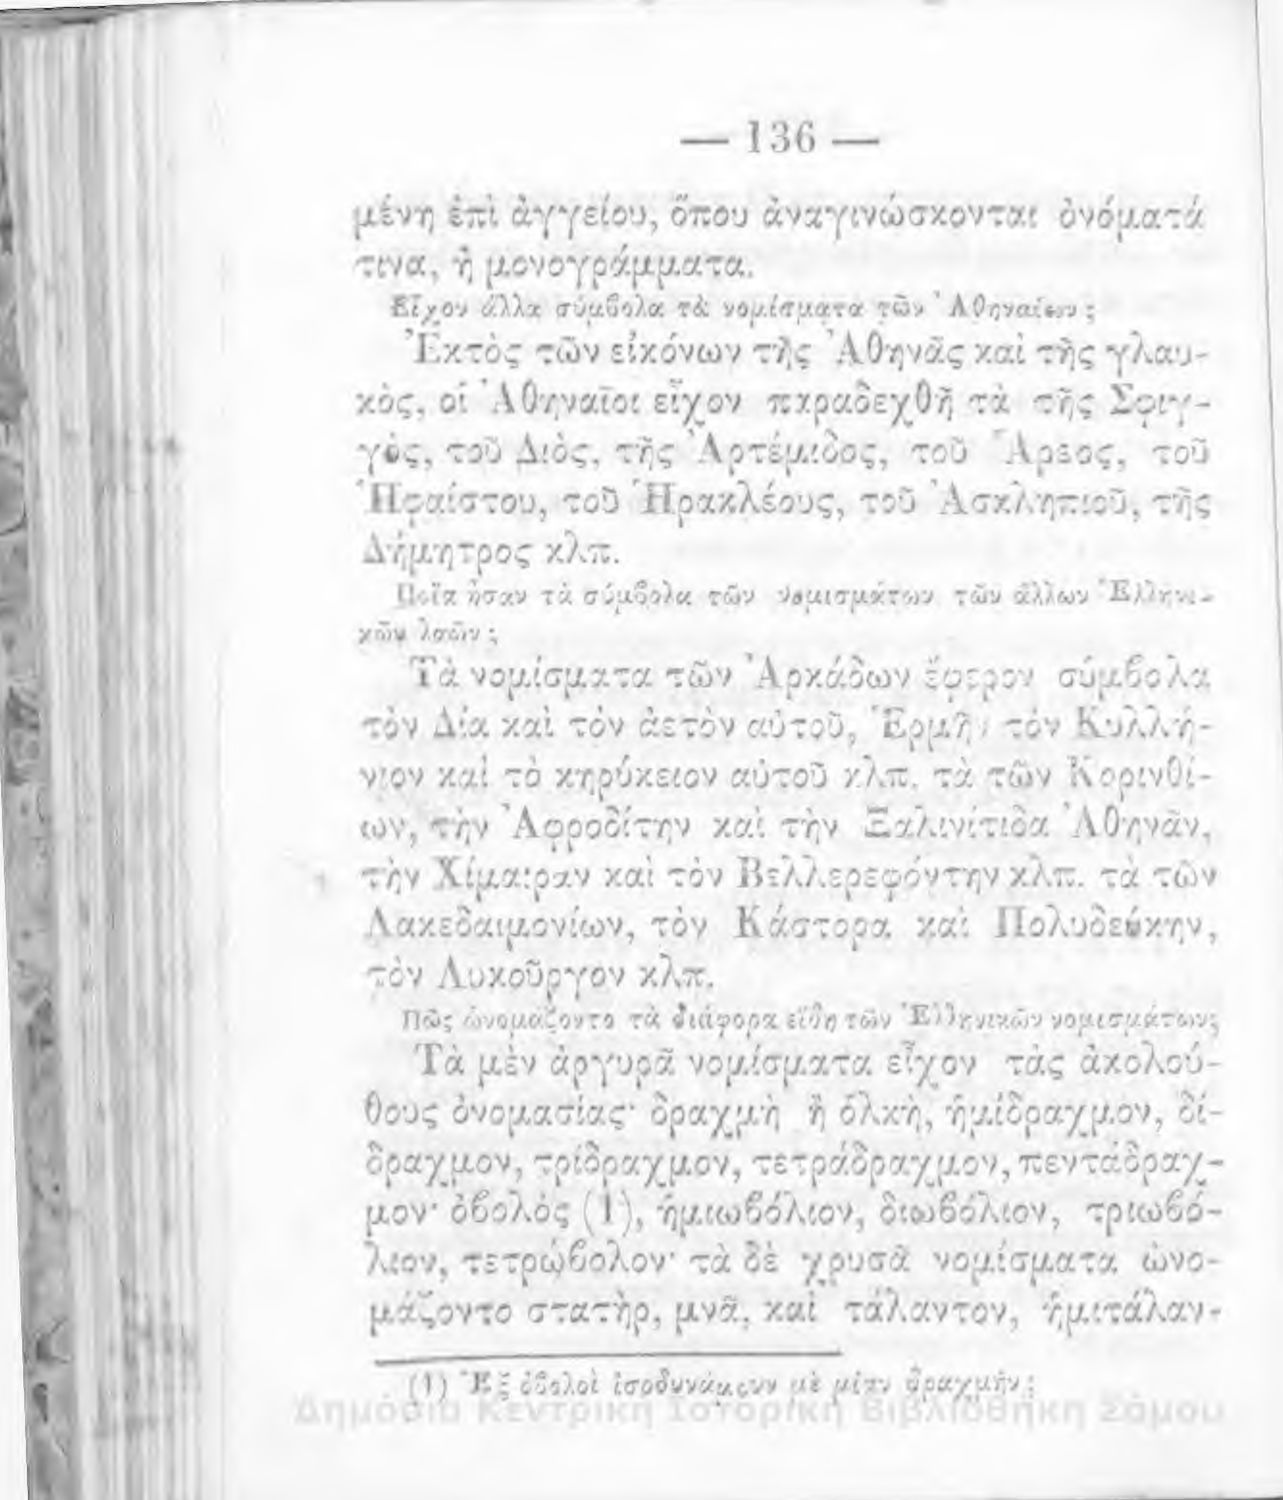 — 136 —
μένη ἐπὶ ἀγγείου, ὅπου ἀναγινώσκονται ὀνόματά
τινα, ἢ μονογράμματα.
Εἶχον ἄλλα σύμβολα τὰ νομίσματα τῶν Ἀθηναίων;
Ἐκτὸς τῶν εἰκόνων τῆς Ἀθηνᾶς καὶ τῆς γλαυ-
κὸς, οἱ Ἀθηναῖοι εἶχον παραδεχθῆ τὰ τῆς Σφιγ-
γὸς, τοῦ Διὸς, τῆς Ἀρτέμιδος, τοῦ Ἄρεος, τοῦ
Ἡφαίστου, τοῦ Ἡρακλέους, τοῦ Ἀσκληπιοῦ, τῆς
Δήμητρος κλπ.
Ποῖα ἦσαν τὰ σύμβολα τῶν νομισμάτων τῶν ἄλλων Ἑλληνι-
κῶν λαῶν;
Τὰ νομίσματα τῶν Ἀρκάδων ἔφερον σύμβολα
τὸν Δία καὶ τὸν ἀετὸν αὐτοῦ, Ἑρμῆν τὸν Κυλλή-
νιον καὶ τὸ κηρύκειον αὐτοῦ κλπ. τὰ τῶν Κορινθί-
ων, τὴν Ἀφροδίτην καὶ τὴν Ξαλινίτιδα Ἀθηνᾶν,
τὴν Χίμαιραν καὶ τὸν Βελλερεφόντην κλπ. τὰ τῶν
Λακεδαιμονίων, τὸν Κάστορα καὶ Πολυδεύκην,
τὸν Λυκοῦργον κλπ.
Πῶς ὠνομάζοντο τὰ διάφορα εἴδη τῶν Ἑλληνικῶν νομισμάτων;
Τὰ μὲν ἀργυρᾶ νομίσματα εἶχον τὰς ἀκολού-
θους ὀνομασίας· δραχμὴ ἢ ὁλκὴ, ἡμίδραχμον, δί-
δραχμον, τρίδραχμον, τετράδραχμον, πεντάδραχ-
μον· ὀβολὸς (1), ἡμιωβόλιον, διωβόλιον, τριωβό-
λιον, τετρώβολον· τὰ δὲ χρυσᾶ νομίσματα ὠνο-
μάζοντο στατὴρ, μνᾶ, καὶ τάλαντον, ἡμιτάλαν-
(1) Ἓξ ὀβολοὶ ἰσοδυνάμουν μὲ μίαν δραχμήν;
Δημόσια Κεντρική Ιστορική Βιβλιοθήκη Σάμου